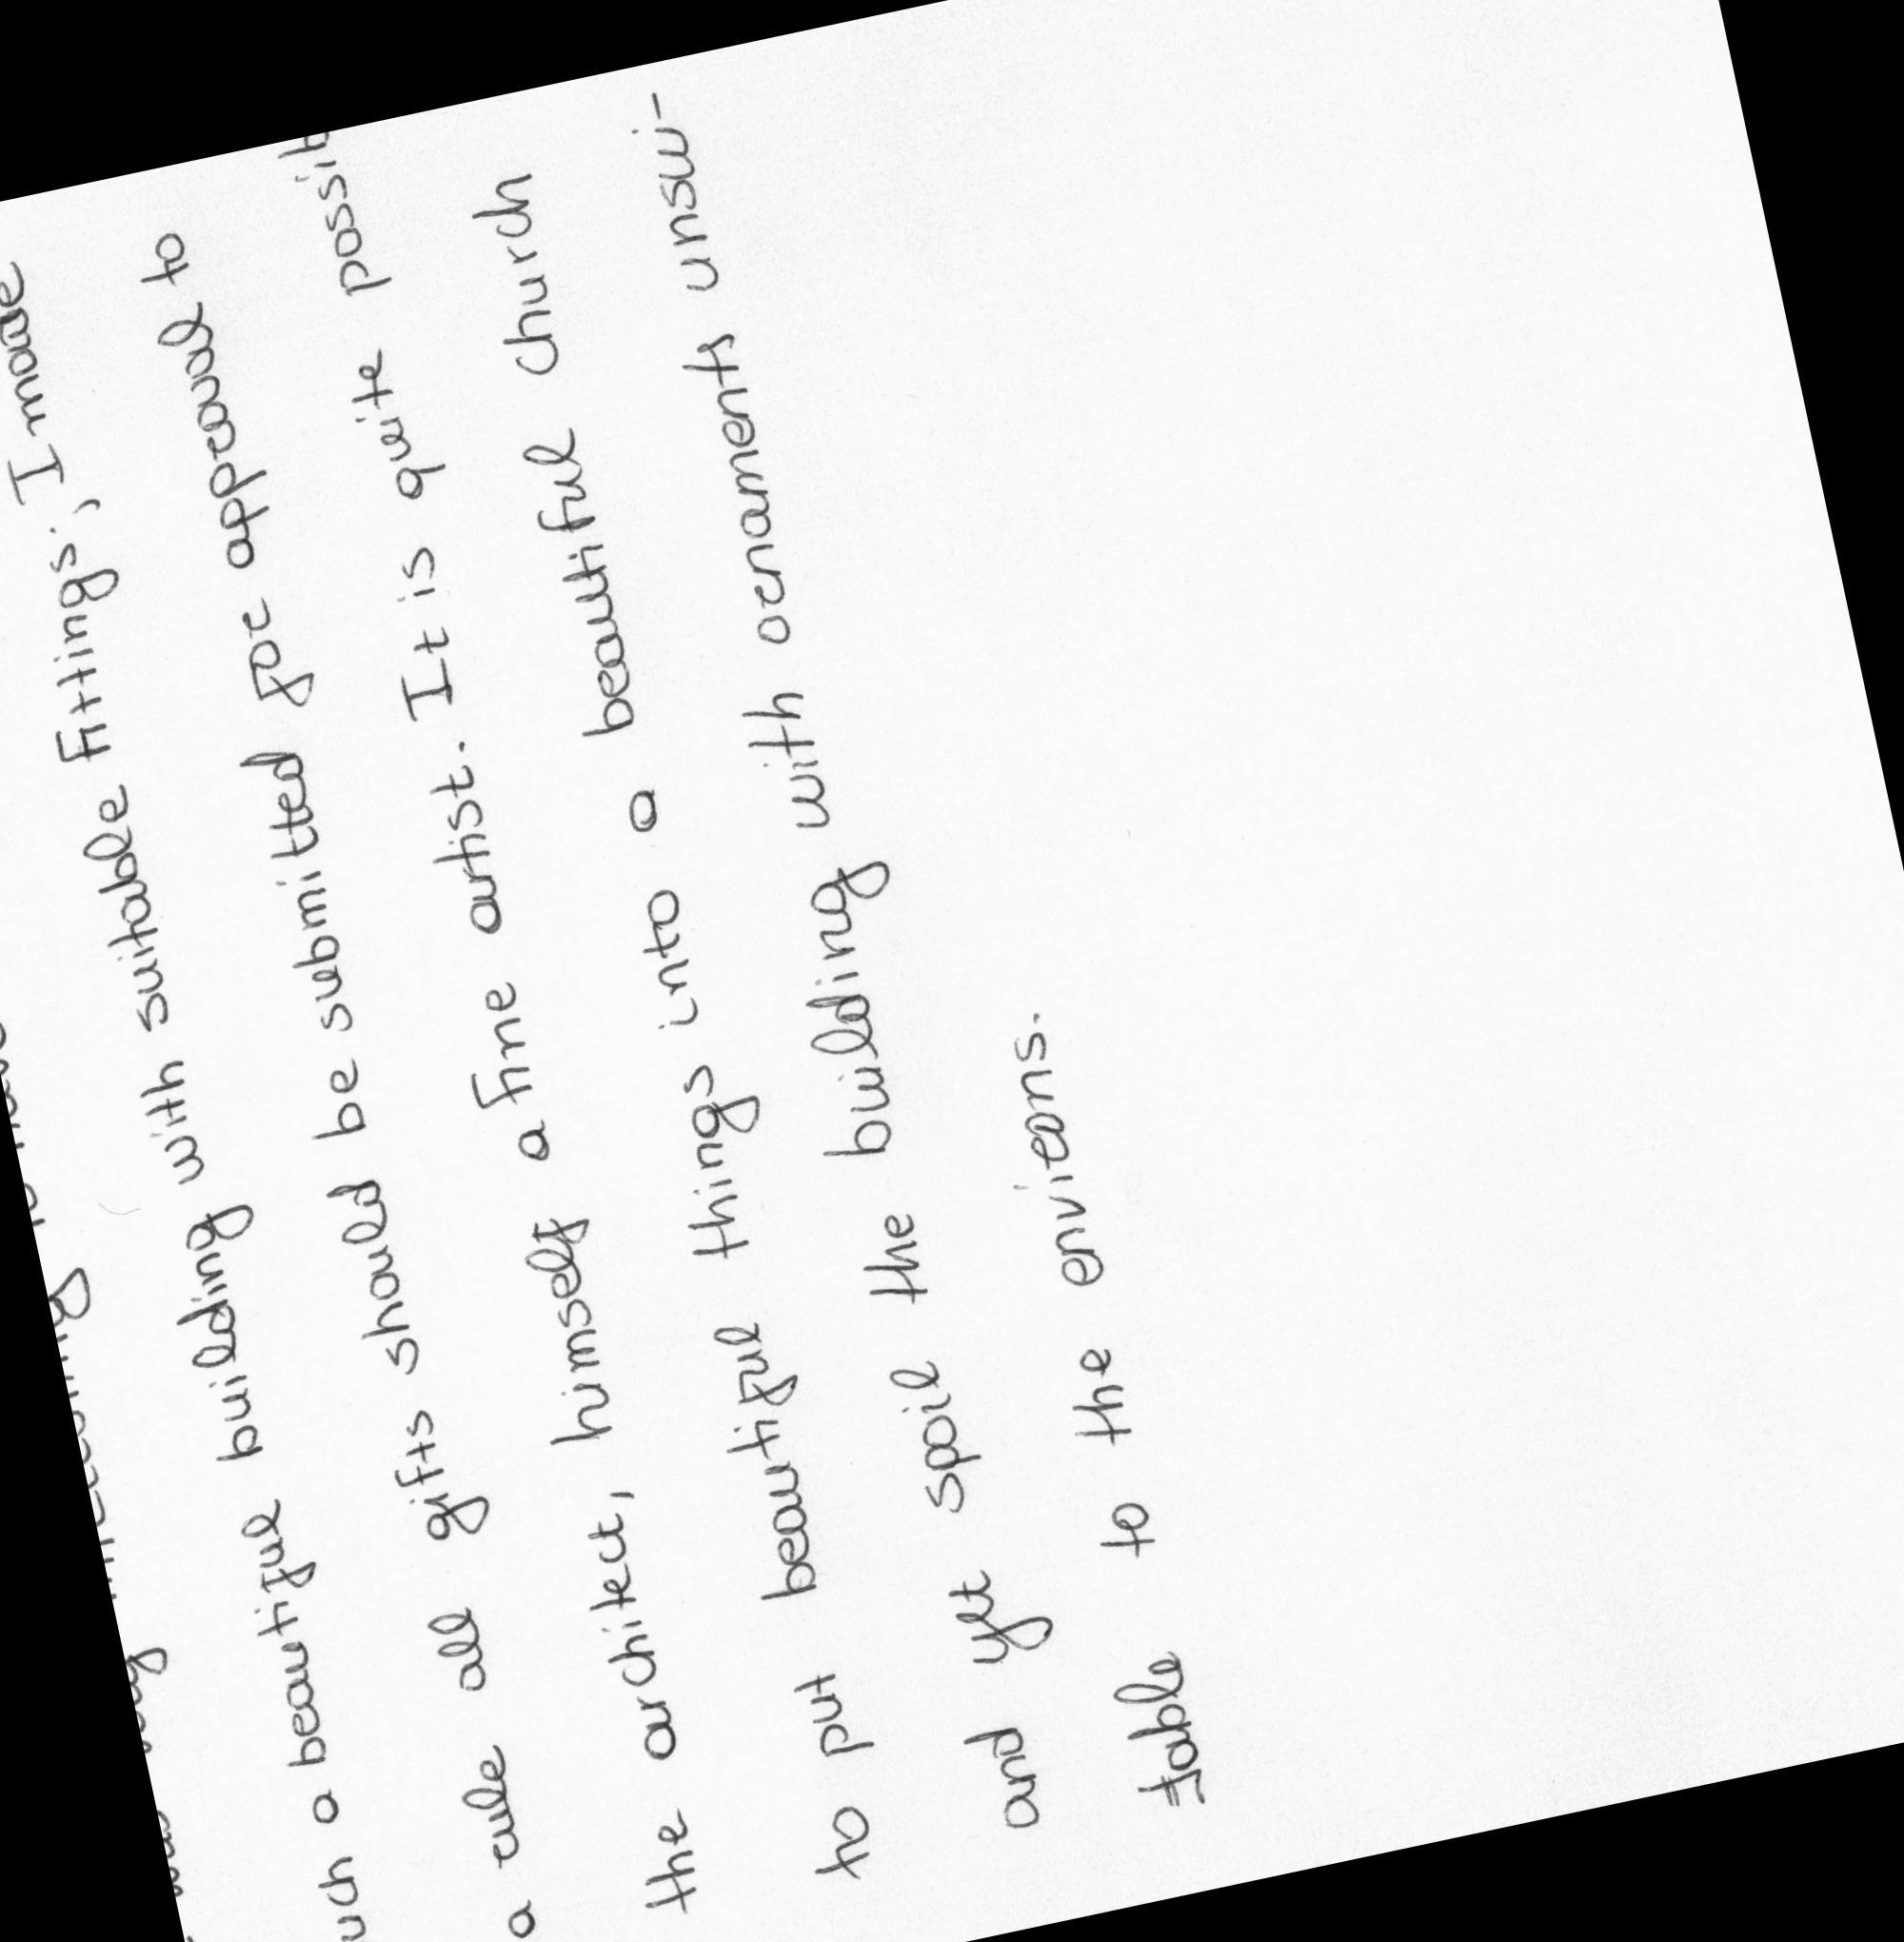 such a beautiful building with suitable Fittings; I made
a rule all gifts should be submitted for approval to
the architect, himself a fine artist. It is quite possib
to put beautiful things into a beautiful church
and yet spoil the building with ornaments unsui-
table to the environs.